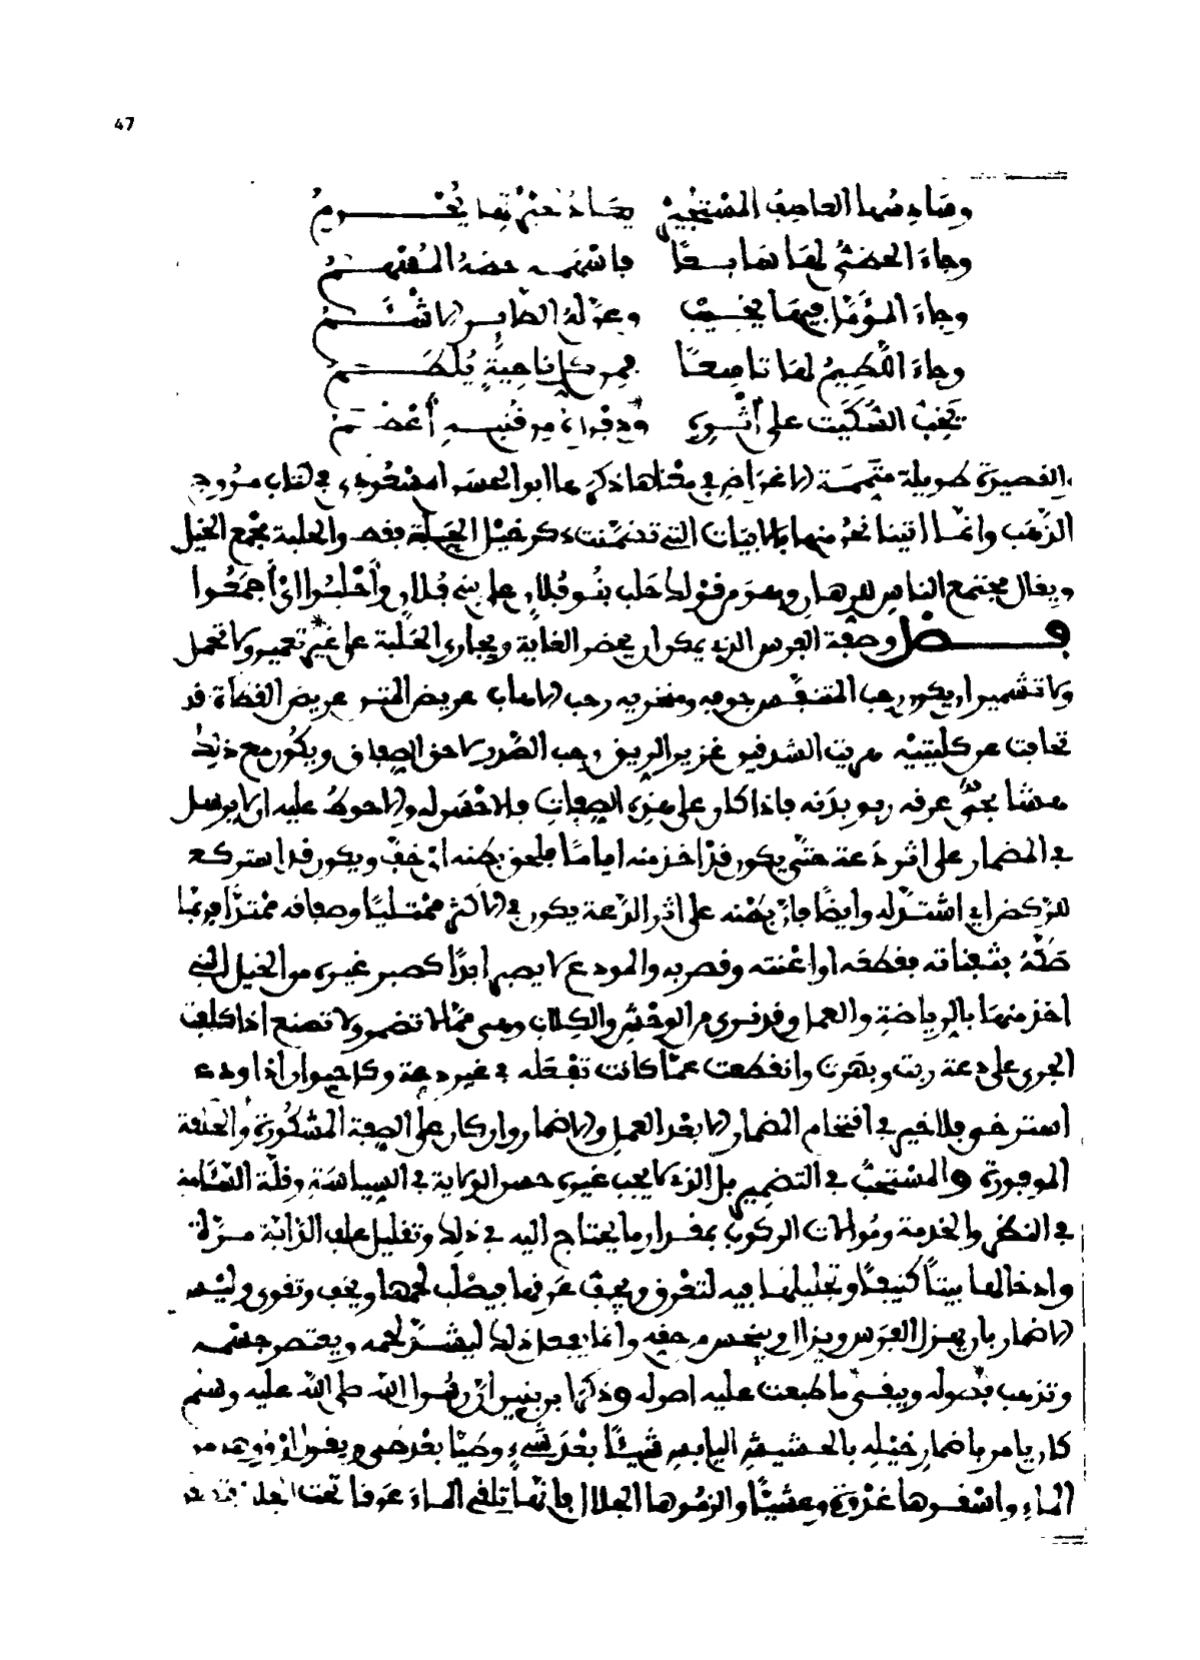 47
وصادفها العاطف المستجيش يكاد لحيرتها يحرم
وجاء الحضي لها سابعا فاسهمه حضه المسهم
وجاء المؤمل فيها يخيب وعن له الطاير الاشئم
وجاء اللطيم لها تاسعا فمن كل ناحية يلطم
يخب السكيت على اثره وذفراه من قنبه أعظم
القصيدة طويلة متممة الاغراض في معناها ذكرها ابو الحسن المسعودي في كتاب مروج
الذهب وانما اتينا نحن منها بالابيات التي تضمنت ذكر خيل الحلبة فقط والحلبة مجمع الخيل
ويقال مجتمع الناس للرهان وهو من قولك حلب بنو فلان على بني فلان وأحلبوا اي أجمعوا
فصل وصفة الفرس الذي يمكن ان يحضر الغاية ويجاري الحلبة على غير تضمير ولا تحمل
ولا تشمير ان يكون رحب المتنفس جوفه ومنخريه رحب الاهاب عريض المتن عريض القطاة قد
تجافت عن كليتيه هريت الشدقين غزير الريق رحب الصدر لاحق الصفاق ويكون مع ذلك
هشا يجم عرقه ربو بدنه فاذا كان على هذه الصفات فلا خضول والاحوط عليه ان لا يرسل
في المضمار على اثر دعة حتى يكون قد اخذ منه اياما فلحق بطنه اي خف ويكون قد استركع
للركض اي اشتد له وايضا فان بطنه على اثر الدعة يكون في الاكثر ممتليا وصفاقه ممتدا فربما
حثه بشغناته فقطعه او اعنته وقصر به والمودع لا يصبر ابدا كصبر غيره من الخيل التي
اخذ منها بالرياضة والعمل وقد نرى من الوحش والكلاب وهي مما لا تضمر ولا تصنع اذا كلفت
الجري على دعة ربت وبهرت وانقطعت عما كانت تفعله في غير دعة وكل حيوان اذا ودع
استرخى فلا خير في اقتحام الضمار الا بعد العمل والاضمار وان كان على الصفة المشكورة والخلقة
الموفورة والمستحب في التضمير بل الذي لا يجب غيره حسن الولاية في السياسة وقلة السآمة
في النظر والخدمة وموالات الركوب بمقدار ما يحتاج اليه في ذلك وتقليل علف الدابة مدة
وادخالها بيتا كنيفا وتجليلها فيه لتعرق ويجف عرقها فيصلب لحمها ويخف وتقوى وليس
الاضمار بان يهزل الفرس ويزال ويبخس من حقه وانما يفعل ذلك ليشتد لحمه ويعتصر جسمه
وتذهب فضوله ويبقى ما طبعت عليه اصوله وذكر ابن بنين ان رسول الله صلى الله عليه وسلم
كان يامر باضمار خيله بالحشيش اليابس شيئا بعد شيء وطيا بعد طي ويقول ارووها من
الماء واسقوها غدوة وعشيا والزموها الجلال فانها تلقي الماء عرقا تحت الجلال